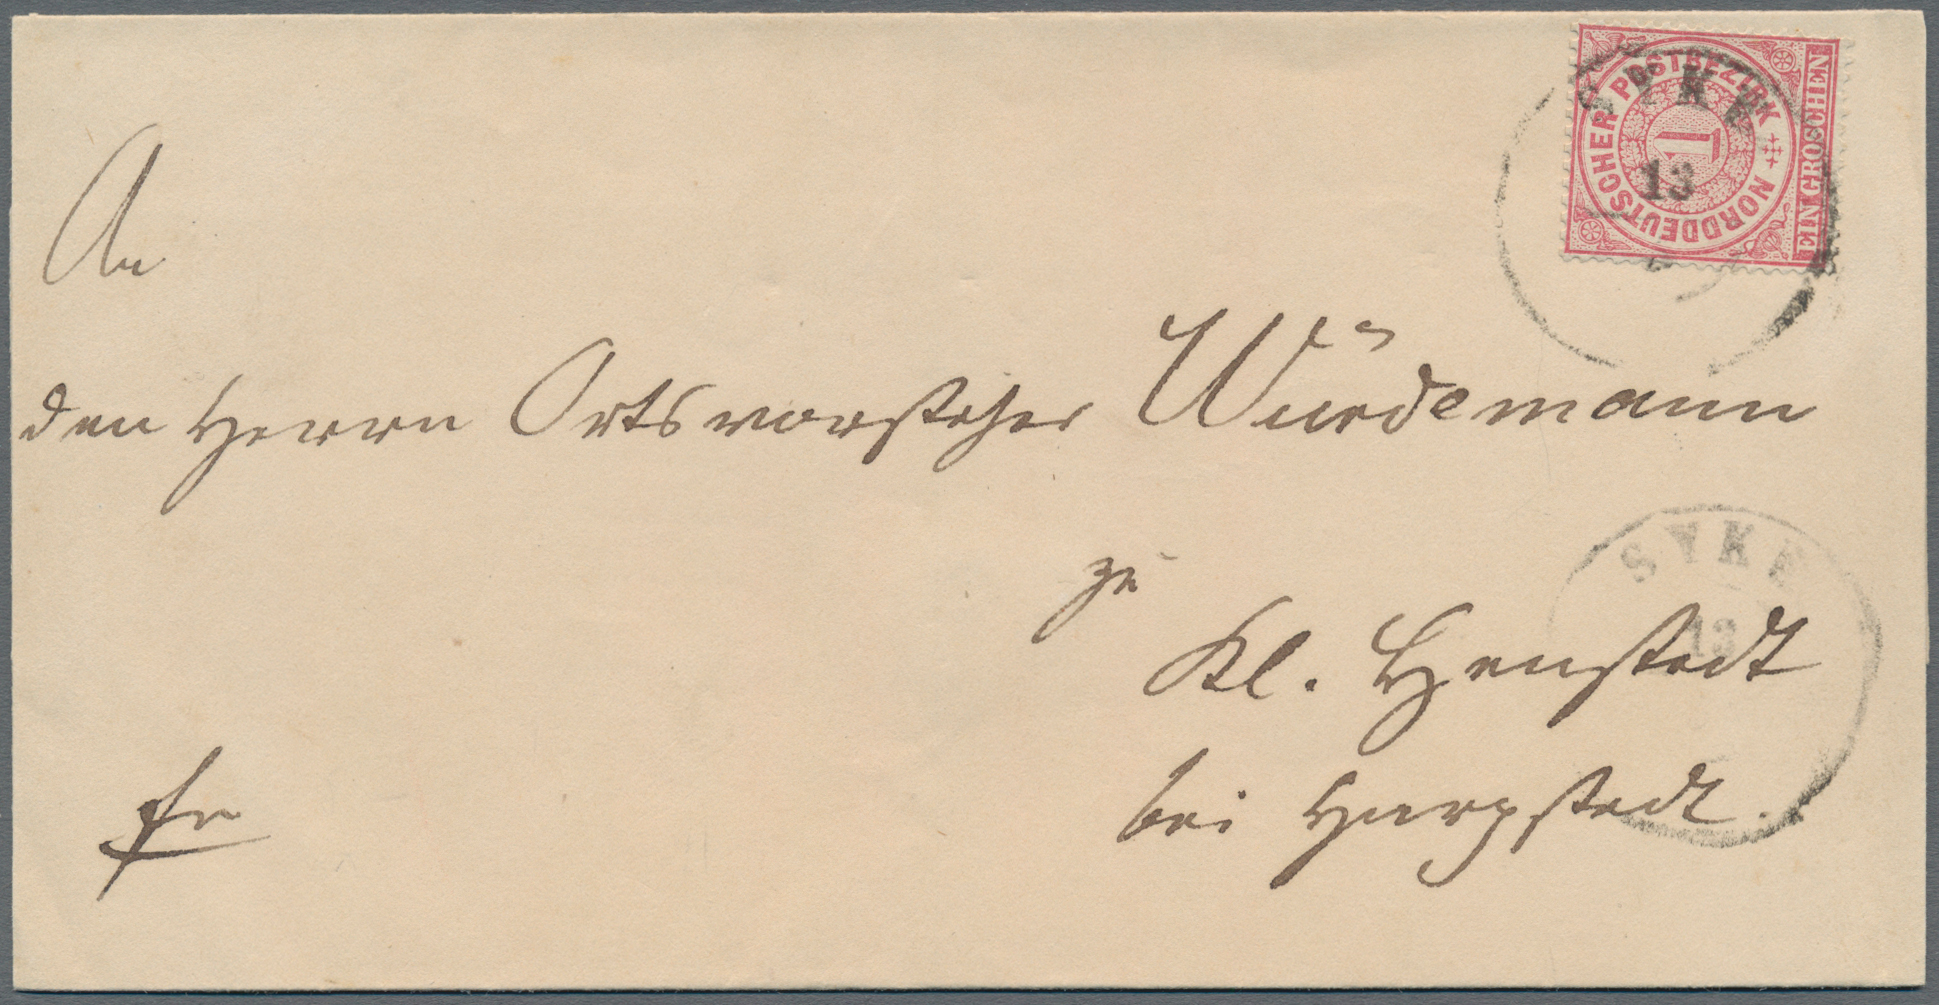 NORDDEUTSCHER POSTBEZIRK
1
EIN GROSCHEN
SYKE
13
An
den Herrn Ortsvorsteher Würdemann
zu
Kl. Henstedt
bei Harpstedt.
fr
SYKE
13